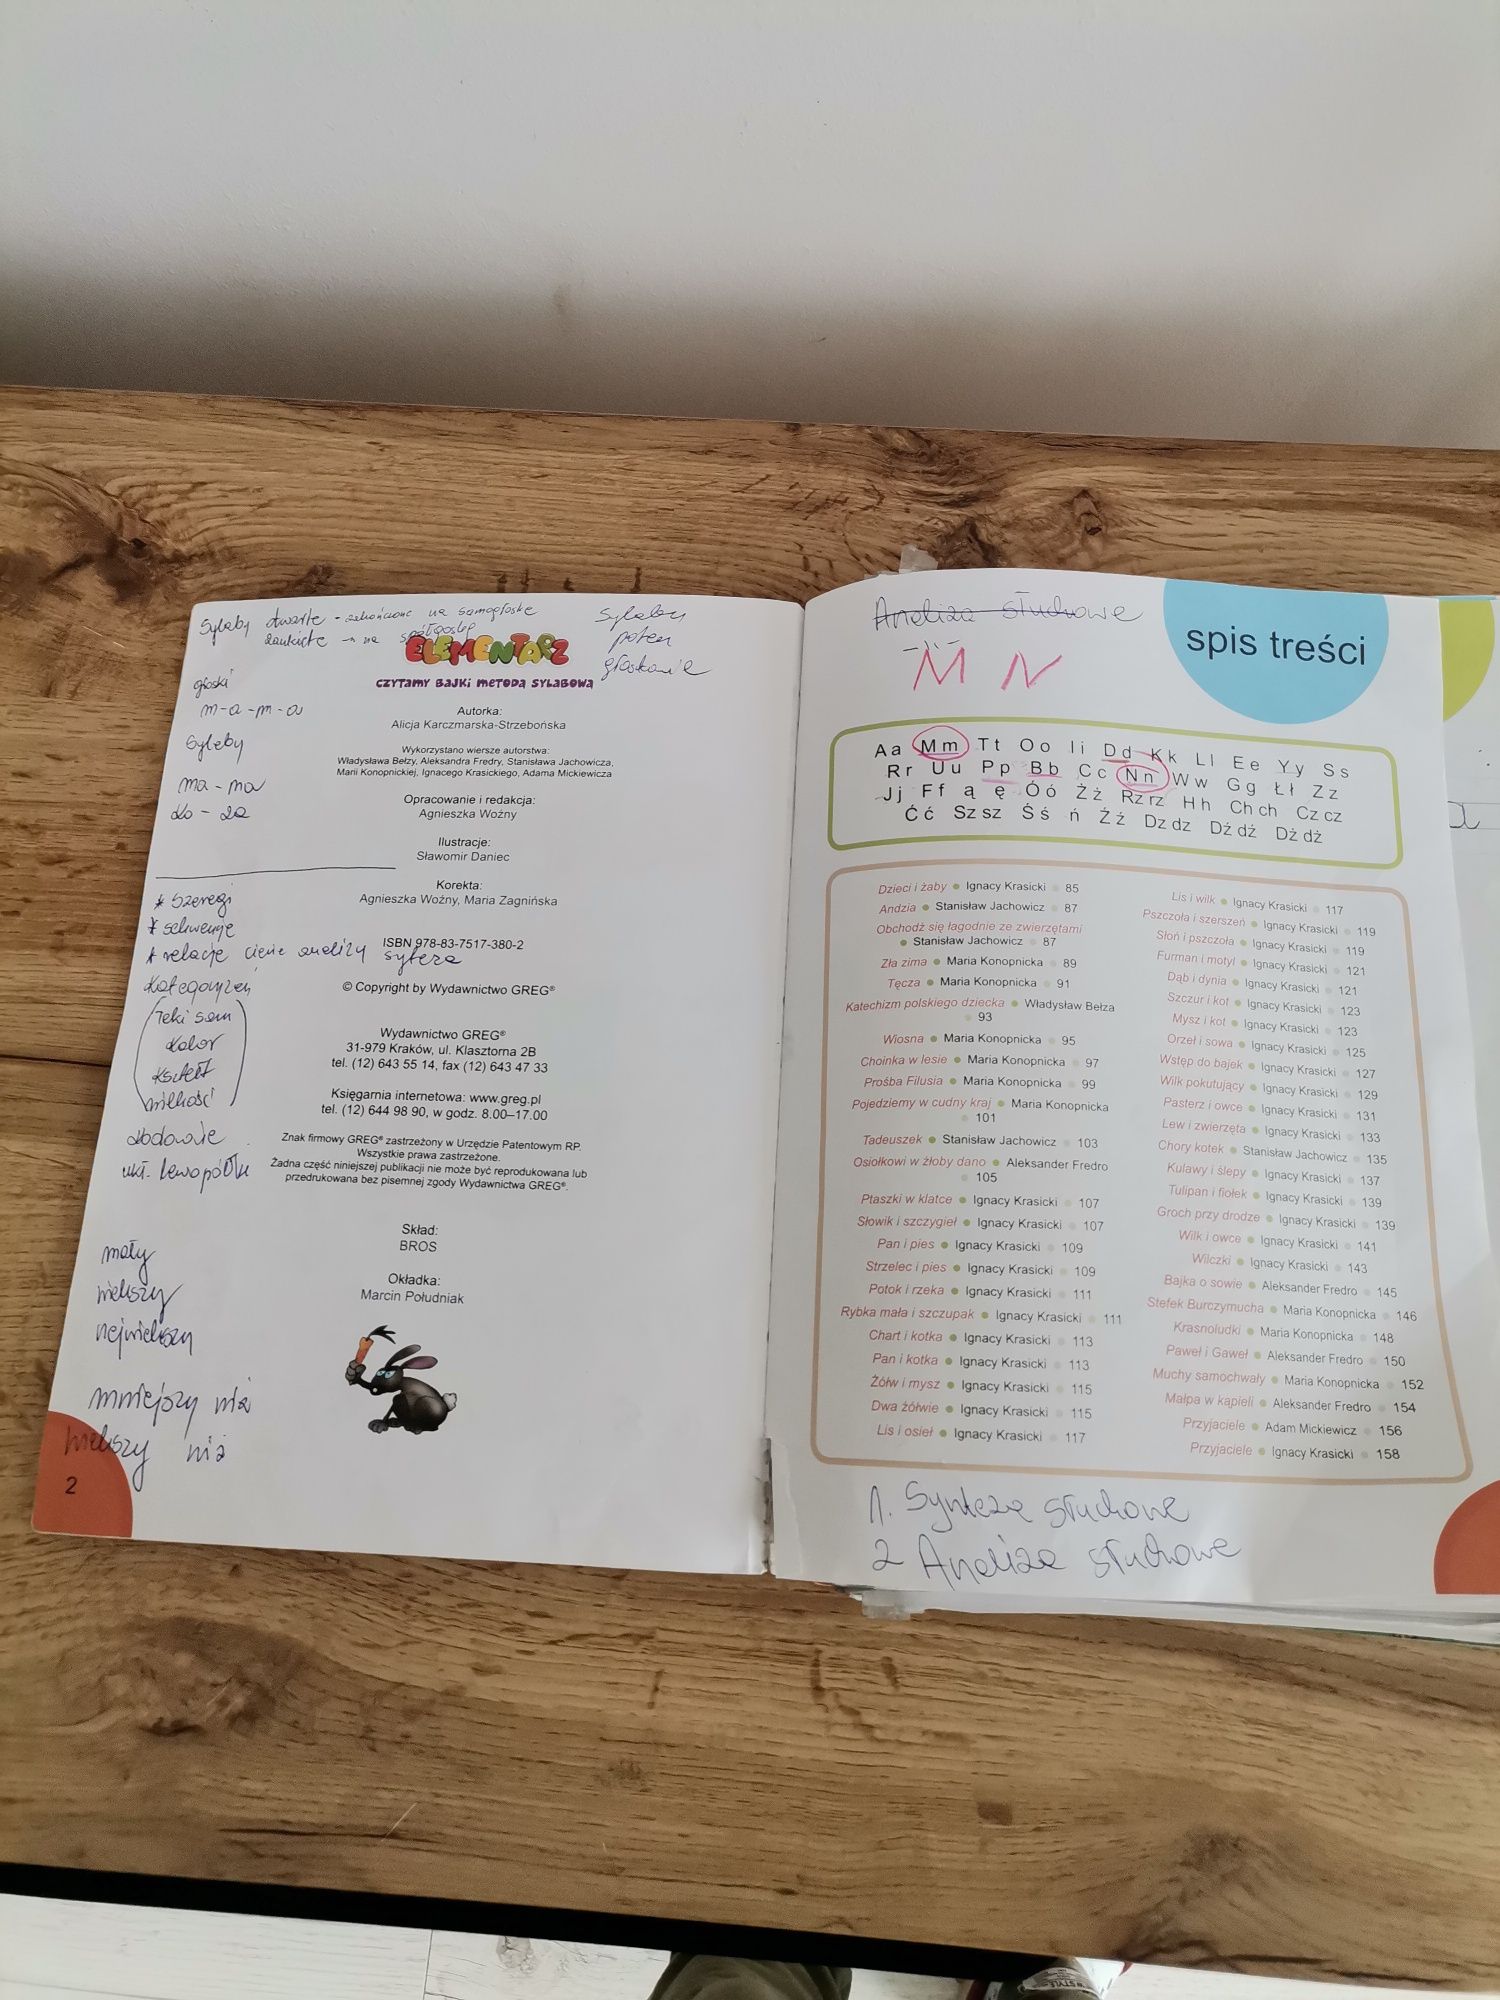 Sylaby otwarte - zakończone na samogłoskę
zamknięte → na spółgoskę
Sylaby
potem
głoskowanie
ELEMENTARZ
CZYTAMY BAJKI METODĄ SYLABOWĄ
głoski
m-a-m-a
Sylaby
ma-ma
* Szeregi
* sekwencje
* relacje
analizy
synteza
Kategoryzacja
taki sam
kolor
kształt
wielkość
kodowanie
mały
większy
największy
mniejszy niż
większy niż
Autorka:
Alicja Karczmarska-Strzebońska
Wykorzystano wiersze autorstwa:
Władysława Bełzy, Aleksandra Fredry, Stanisława Jachowicza,
Marii Konopnickiej, Ignacego Krasickiego, Adama Mickiewicza
Opracowanie i redakcja:
Agnieszka Woźny
Ilustracje:
Sławomir Daniec
Korekta:
Agnieszka Woźny, Maria Zagnińska
ISBN 978-83-7517-380-2
© Copyright by Wydawnictwo GREG®
Wydawnictwo GREG®
31-979 Kraków, ul. Klasztorna 2B
tel. (12) 643 55 14, fax (12) 643 47 33
Księgarnia internetowa: www.greg.pl
tel. (12) 644 98 90, w godz. 8.00–17.00
Znak firmowy GREG® zastrzeżony w Urzędzie Patentowym RP.
Wszystkie prawa zastrzeżone.
Żadna część niniejszej publikacji nie może być reprodukowana lub
przedrukowana bez pisemnej zgody Wydawnictwa GREG®.
Skład:
BROS
Okładka:
Marcin Południak
2
Analiza słuchowe
M N
spis treści
Aa Mm Tt Oo Ii Dd Kk Ll Ee Yy Ss
Rr Uu Pp Bb Cc Nn Ww Gg Łł Zz
Jj Ff ą ę Óó Żż Rz rz Hh Ch ch Cz cz
Ćć Sz sz Śś ń Źź Dz dz Dź dź Dż dż
Dzieci i żaby Ignacy Krasicki 85
Andzia Stanisław Jachowicz 87
Obchodź się łagodnie ze zwierzętami
Stanisław Jachowicz 87
Zła zima Maria Konopnicka 89
Tęcza Maria Konopnicka 91
Katechizm polskiego dziecka Władysław Bełza
93
Wiosna Maria Konopnicka 95
Choinka w lesie Maria Konopnicka 97
Prośba Filusia Maria Konopnicka 99
Pojedziemy w cudny kraj Maria Konopnicka
101
Tadeuszek Stanisław Jachowicz 103
Osiołkowi w żłoby dano Aleksander Fredro
105
Ptaszki w klatce Ignacy Krasicki 107
Słowik i szczygieł Ignacy Krasicki 107
Pan i pies Ignacy Krasicki 109
Strzelec i pies Ignacy Krasicki 109
Potok i rzeka Ignacy Krasicki 111
Rybka mała i szczupak Ignacy Krasicki 111
Chart i kotka Ignacy Krasicki 113
Pan i kotka Ignacy Krasicki 113
Żółw i mysz Ignacy Krasicki 115
Dwa żółwie Ignacy Krasicki 115
Lis i osieł Ignacy Krasicki 117
Lis i wilk Ignacy Krasicki 117
Pszczoła i szerszeń Ignacy Krasicki 119
Słoń i pszczoła Ignacy Krasicki 119
Furman i motyl Ignacy Krasicki 121
Dąb i dynia Ignacy Krasicki 121
Szczur i kot Ignacy Krasicki 123
Mysz i kot Ignacy Krasicki 123
Orzeł i sowa Ignacy Krasicki 125
Wstęp do bajek Ignacy Krasicki 127
Wilk pokutujący Ignacy Krasicki 129
Pasterz i owce Ignacy Krasicki 131
Lew i zwierzęta Ignacy Krasicki 133
Chory kotek Stanisław Jachowicz 135
Kulawy i ślepy Ignacy Krasicki 137
Tulipan i fiołek Ignacy Krasicki 139
Groch przy drodze Ignacy Krasicki 139
Wilk i owce Ignacy Krasicki 141
Wilczki Ignacy Krasicki 143
Bajka o sowie Aleksander Fredro 145
Stefek Burczymucha Maria Konopnicka 146
Krasnoludki Maria Konopnicka 148
Paweł i Gaweł Aleksander Fredro 150
Muchy samochwały Maria Konopnicka 152
Małpa w kąpieli Aleksander Fredro 154
Przyjaciele Adam Mickiewicz 156
Przyjaciele Ignacy Krasicki 158
1. Synteza słuchowe
2 Analiza słuchowe